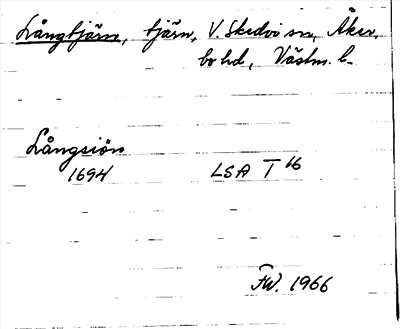 Långtjärn, tjärn, V. Skedvi sn, Åker-
bo hd, Västm. l.
Långsiön
1694 LSA T 16
FW. 1966